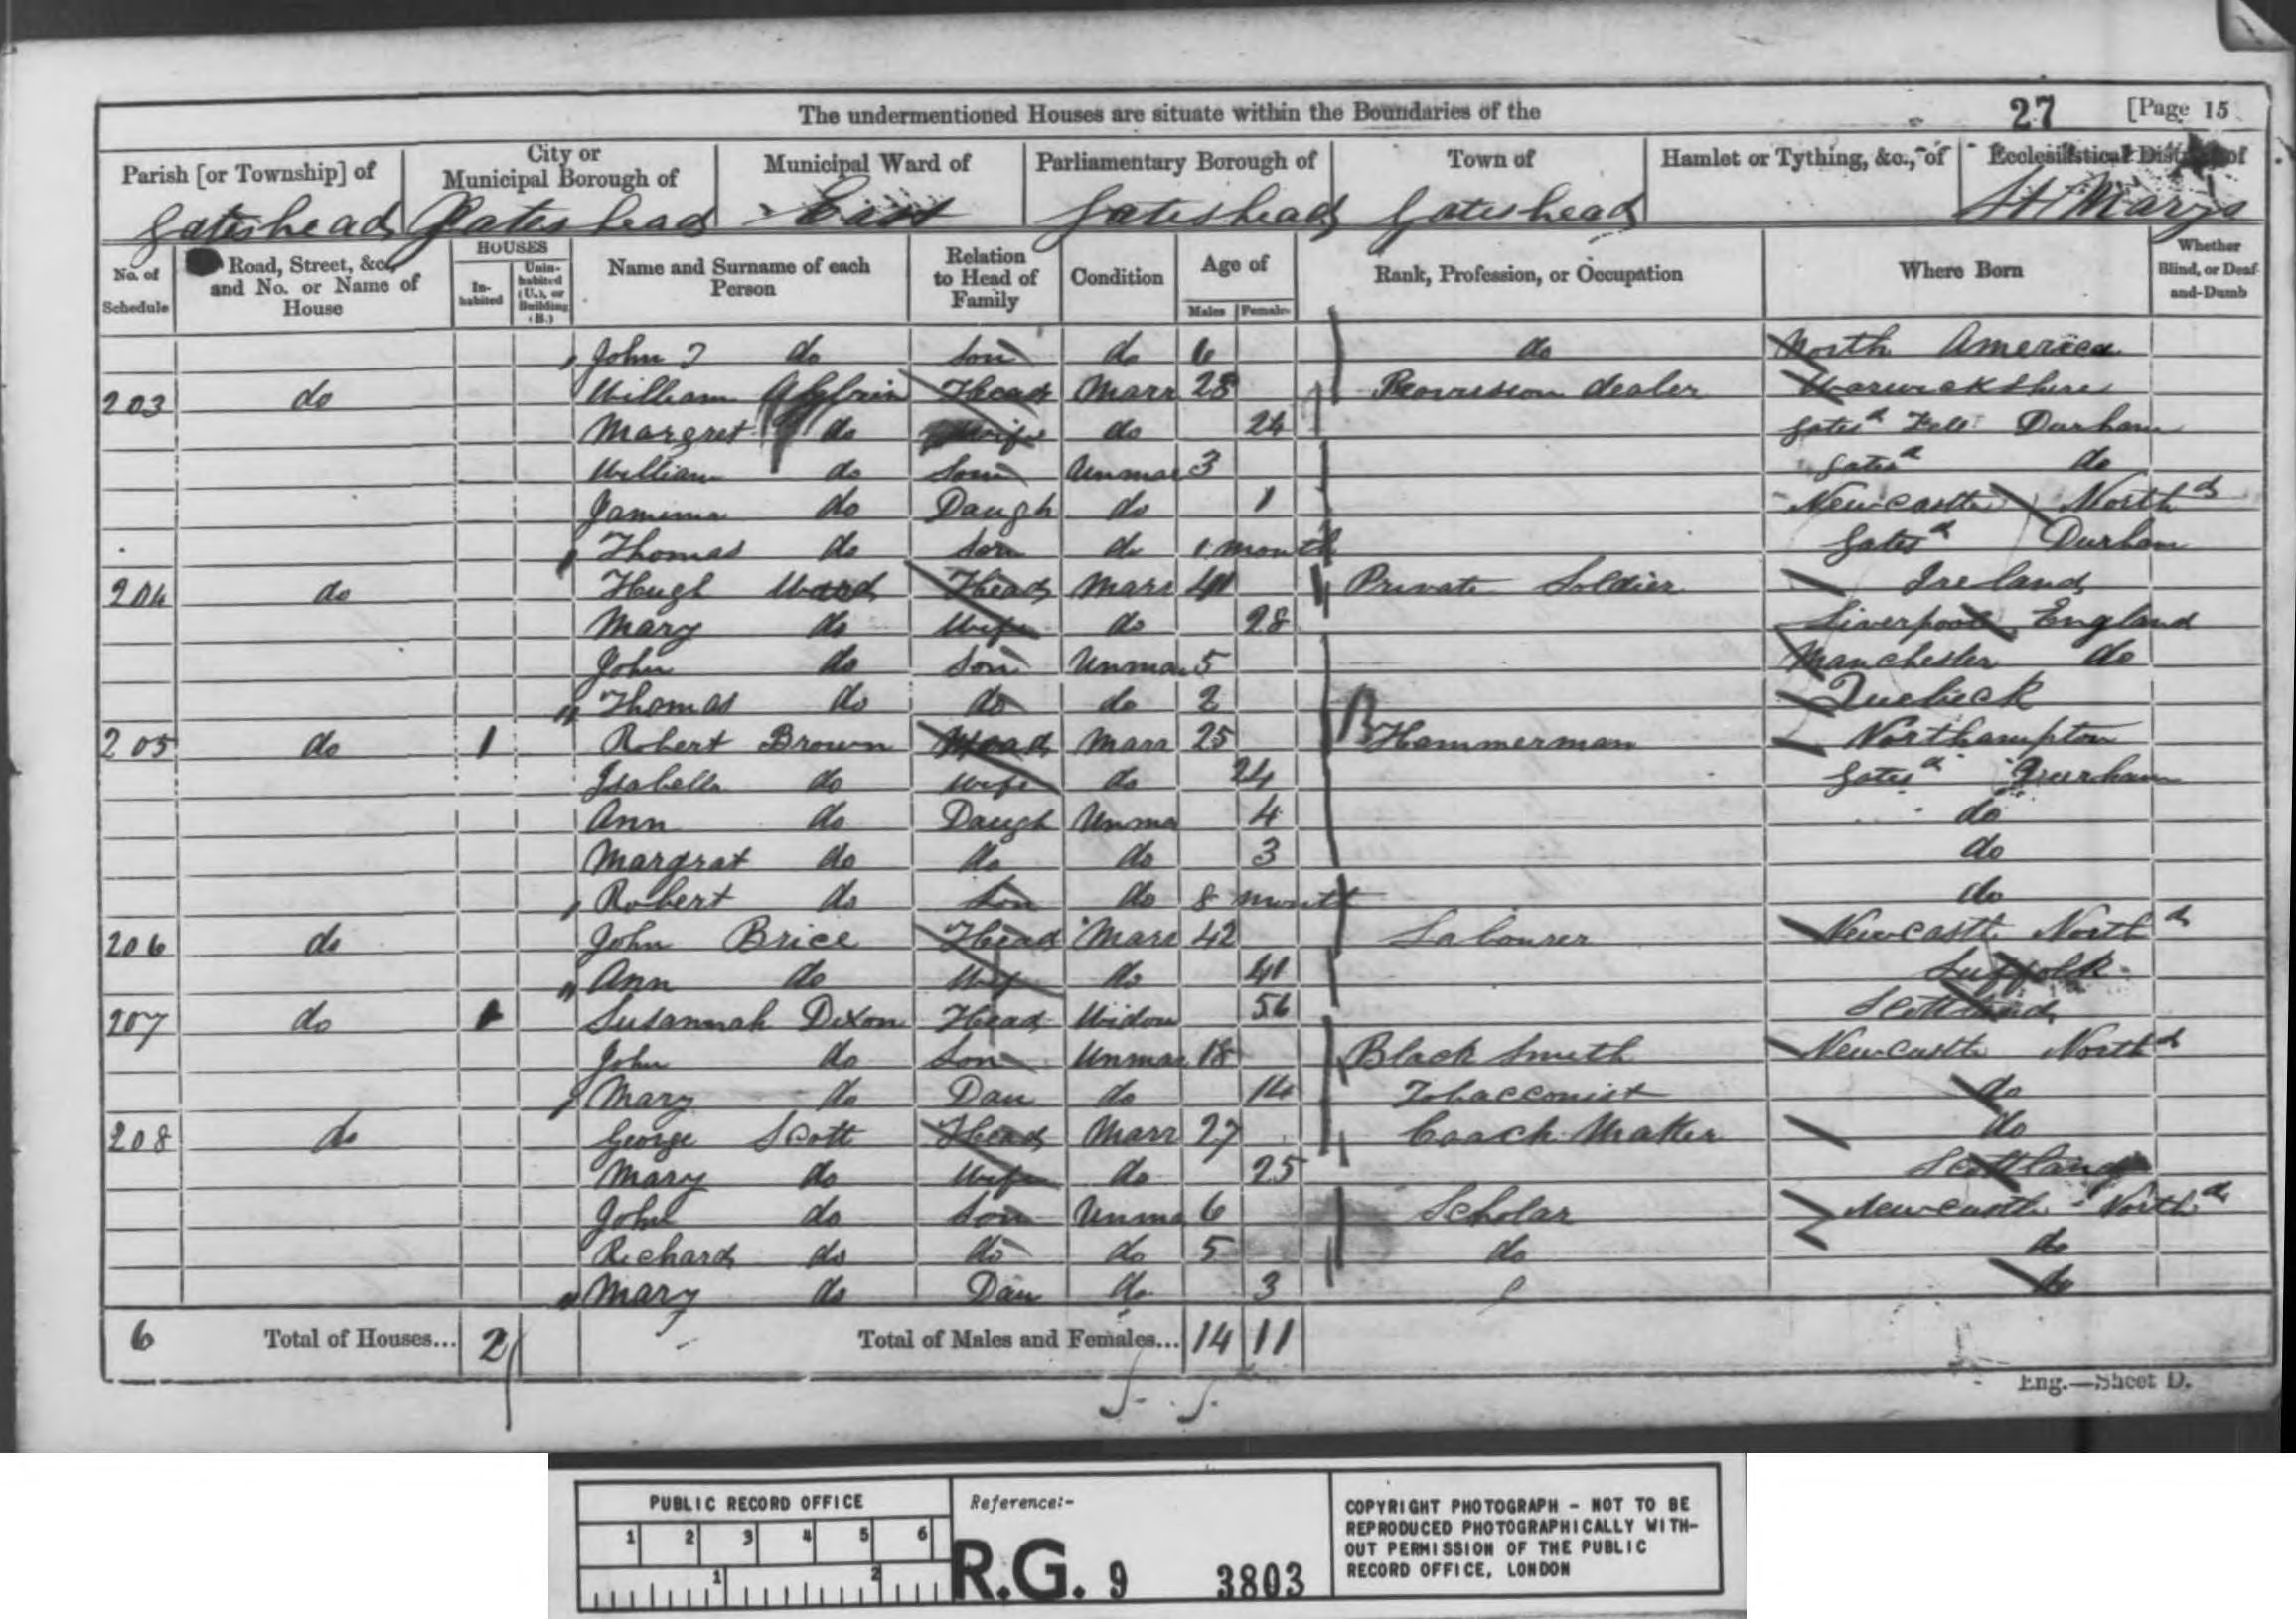 The undermentioned Houses are situate within the Boundaries of the 27 [Page 15
Parish [or Township] of City or Municipal Borough of Municipal Ward of Parliamentary Borough of Town of Hamlet or Tything, &c., of Ecclesiastical District of
Gateshead Gateshead East Gateshead Gateshead St Marys
No. of Schedule Road, Street, &c., and No. or Name of House HOUSES Inhabited Uninhabited (U.), or Building (B.) Name and Surname of each Person Relation to Head of Family Condition Age of Males Females Rank, Profession, or Occupation Where Born Whether Blind, or Deaf-and-Dumb
John do Son do 6 do North America
203 do William Head Marr 28 Provision dealer Warwickshire
Margret do Wife do 24 Gatesd Fell Durham
William do Son Unmar 3 Gatesd do
Jamima do Daugh do 1 Newcastle Northd
Thomas do Son do 1 month Gatesd Durham
204 do Hugh Ward Head Marr 40 Private Soldier Ireland
Mary do Wife do 28 Liverpool England
John do Son Unma 5 Manchester do
Thomas do do do 2 Quebeck
205 do 1 Robert Brown Head Marr 25 Hammerman Northampton
Isabella do Wife do 24 Gatesd Durham
Ann do Daugh Unma 4 do
Margrat do do do 3 do
Robert do Son do 8 month do
206 do John Brice Head Marr 42 Labourer Newcastle Northd
Ann do Wife do 41 Suffolk
207 do 1 Susannah Dixon Head Widow 56 Scotland
John do Son Unmar 18 Black Smith Newcastle Northd
Mary do Dau do 14 Tobacconist do
208 do George Scott Head Marr 27 Coach Maker do
Mary do Wife do 25 Scotland
John do Son Unma 6 Scholar Newcastle Northd
Richard do do do 5 do do
Mary do Dau do 3 do
6 Total of Houses... 2 Total of Males and Females... 14 11
Eng.—Sheet D.
PUBLIC RECORD OFFICE
1 2 3 4 5 6
1 2
Reference:-
R.G. 9 3803
COPYRIGHT PHOTOGRAPH - NOT TO BE
REPRODUCED PHOTOGRAPHICALLY WITH-
OUT PERMISSION OF THE PUBLIC
RECORD OFFICE, LONDON